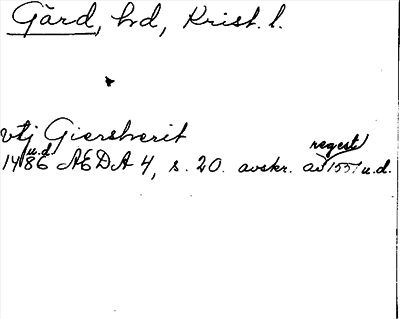 Gärd, hd, Krist. l.
vtj Giersherit
u.d. regest
1486 AEDA 4, s. 20. avskr. av 1551 u.d.